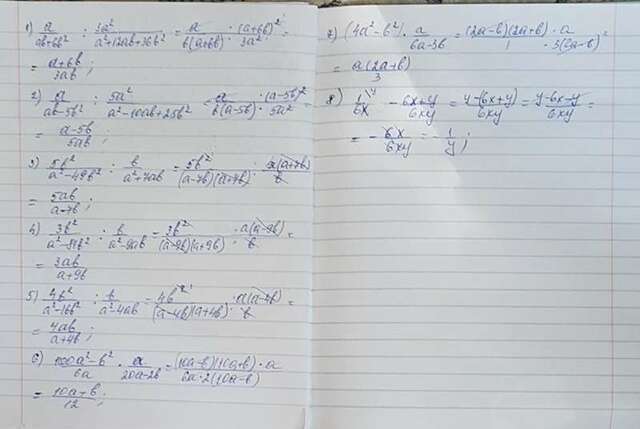 1) a/(ab+6b²) : 3a²/(a²+12ab+36b²) = a/(b(a+6b)) · (a+6b)²/3a² =
= (a+6b)/3ab ;
2) a/(ab-5b²) : 5a²/(a²-10ab+25b²) = a/(b(a-5b)) · (a-5b)²/5a² =
= (a-5b)/5ab ;
3) 5b²/(a²-49b²) : b/(a²+7ab) = 5b²/((a-7b)(a+7b)) · a(a+7b)/b =
= 5ab/(a-7b) ;
4) 3b²/(a²-81b²) : b/(a²-9ab) = 3b²/((a-9b)(a+9b)) · a(a-9b)/b =
= 3ab/(a+9b)
5) 4b²/(a²-16b²) : b/(a²-4ab) = 4b²/((a-4b)(a+4b)) · a(a-4b)/b =
= 4ab/(a+4b) ;
6) (100a²-b²)/6a · a/(20a-2b) = (10a-b)(10a+b)·a/(6a·2(10a-b))
= (10a+b)/12 ;
7) (4a²-b²) · a/(6a-3b) = (2a-b)(2a+b)/1 · a/3(2a-b) =
= a(2a+b)/3
8) 1/6x - (6x+y)/6xy = (y-(6x+y))/6xy = (y-6x-y)/6xy =
= -6x/6xy = -1/y ;